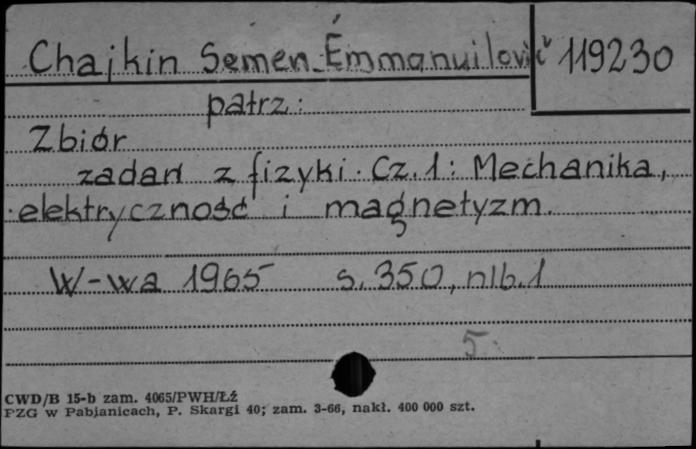 Chajkin Semen Émmanuilovič 119230
patrz:
Zbiór
zadań z fizyki. Cz. 1: Mechanika,
elektryczność i magnetyzm.
W-wa 1965 s. 350, nlb. 1
5.
CWD/B 15-b zam. 4065/PWH/Łź
PZG w Pabjanicach, P. Skargi 40; zam. 3-66, nakł. 400 000 szt.